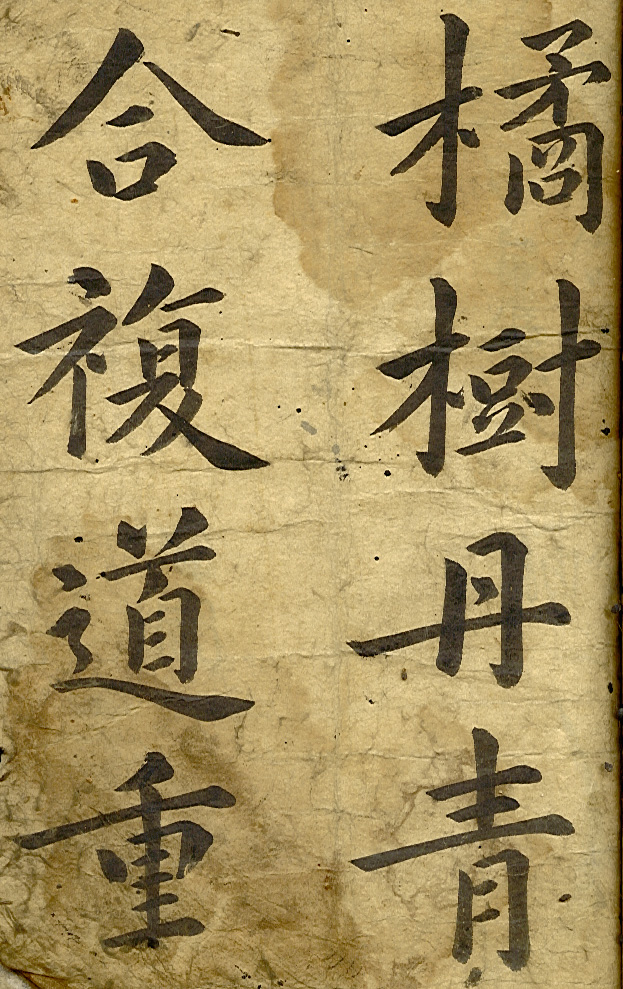 橘樹丹青
合複道重